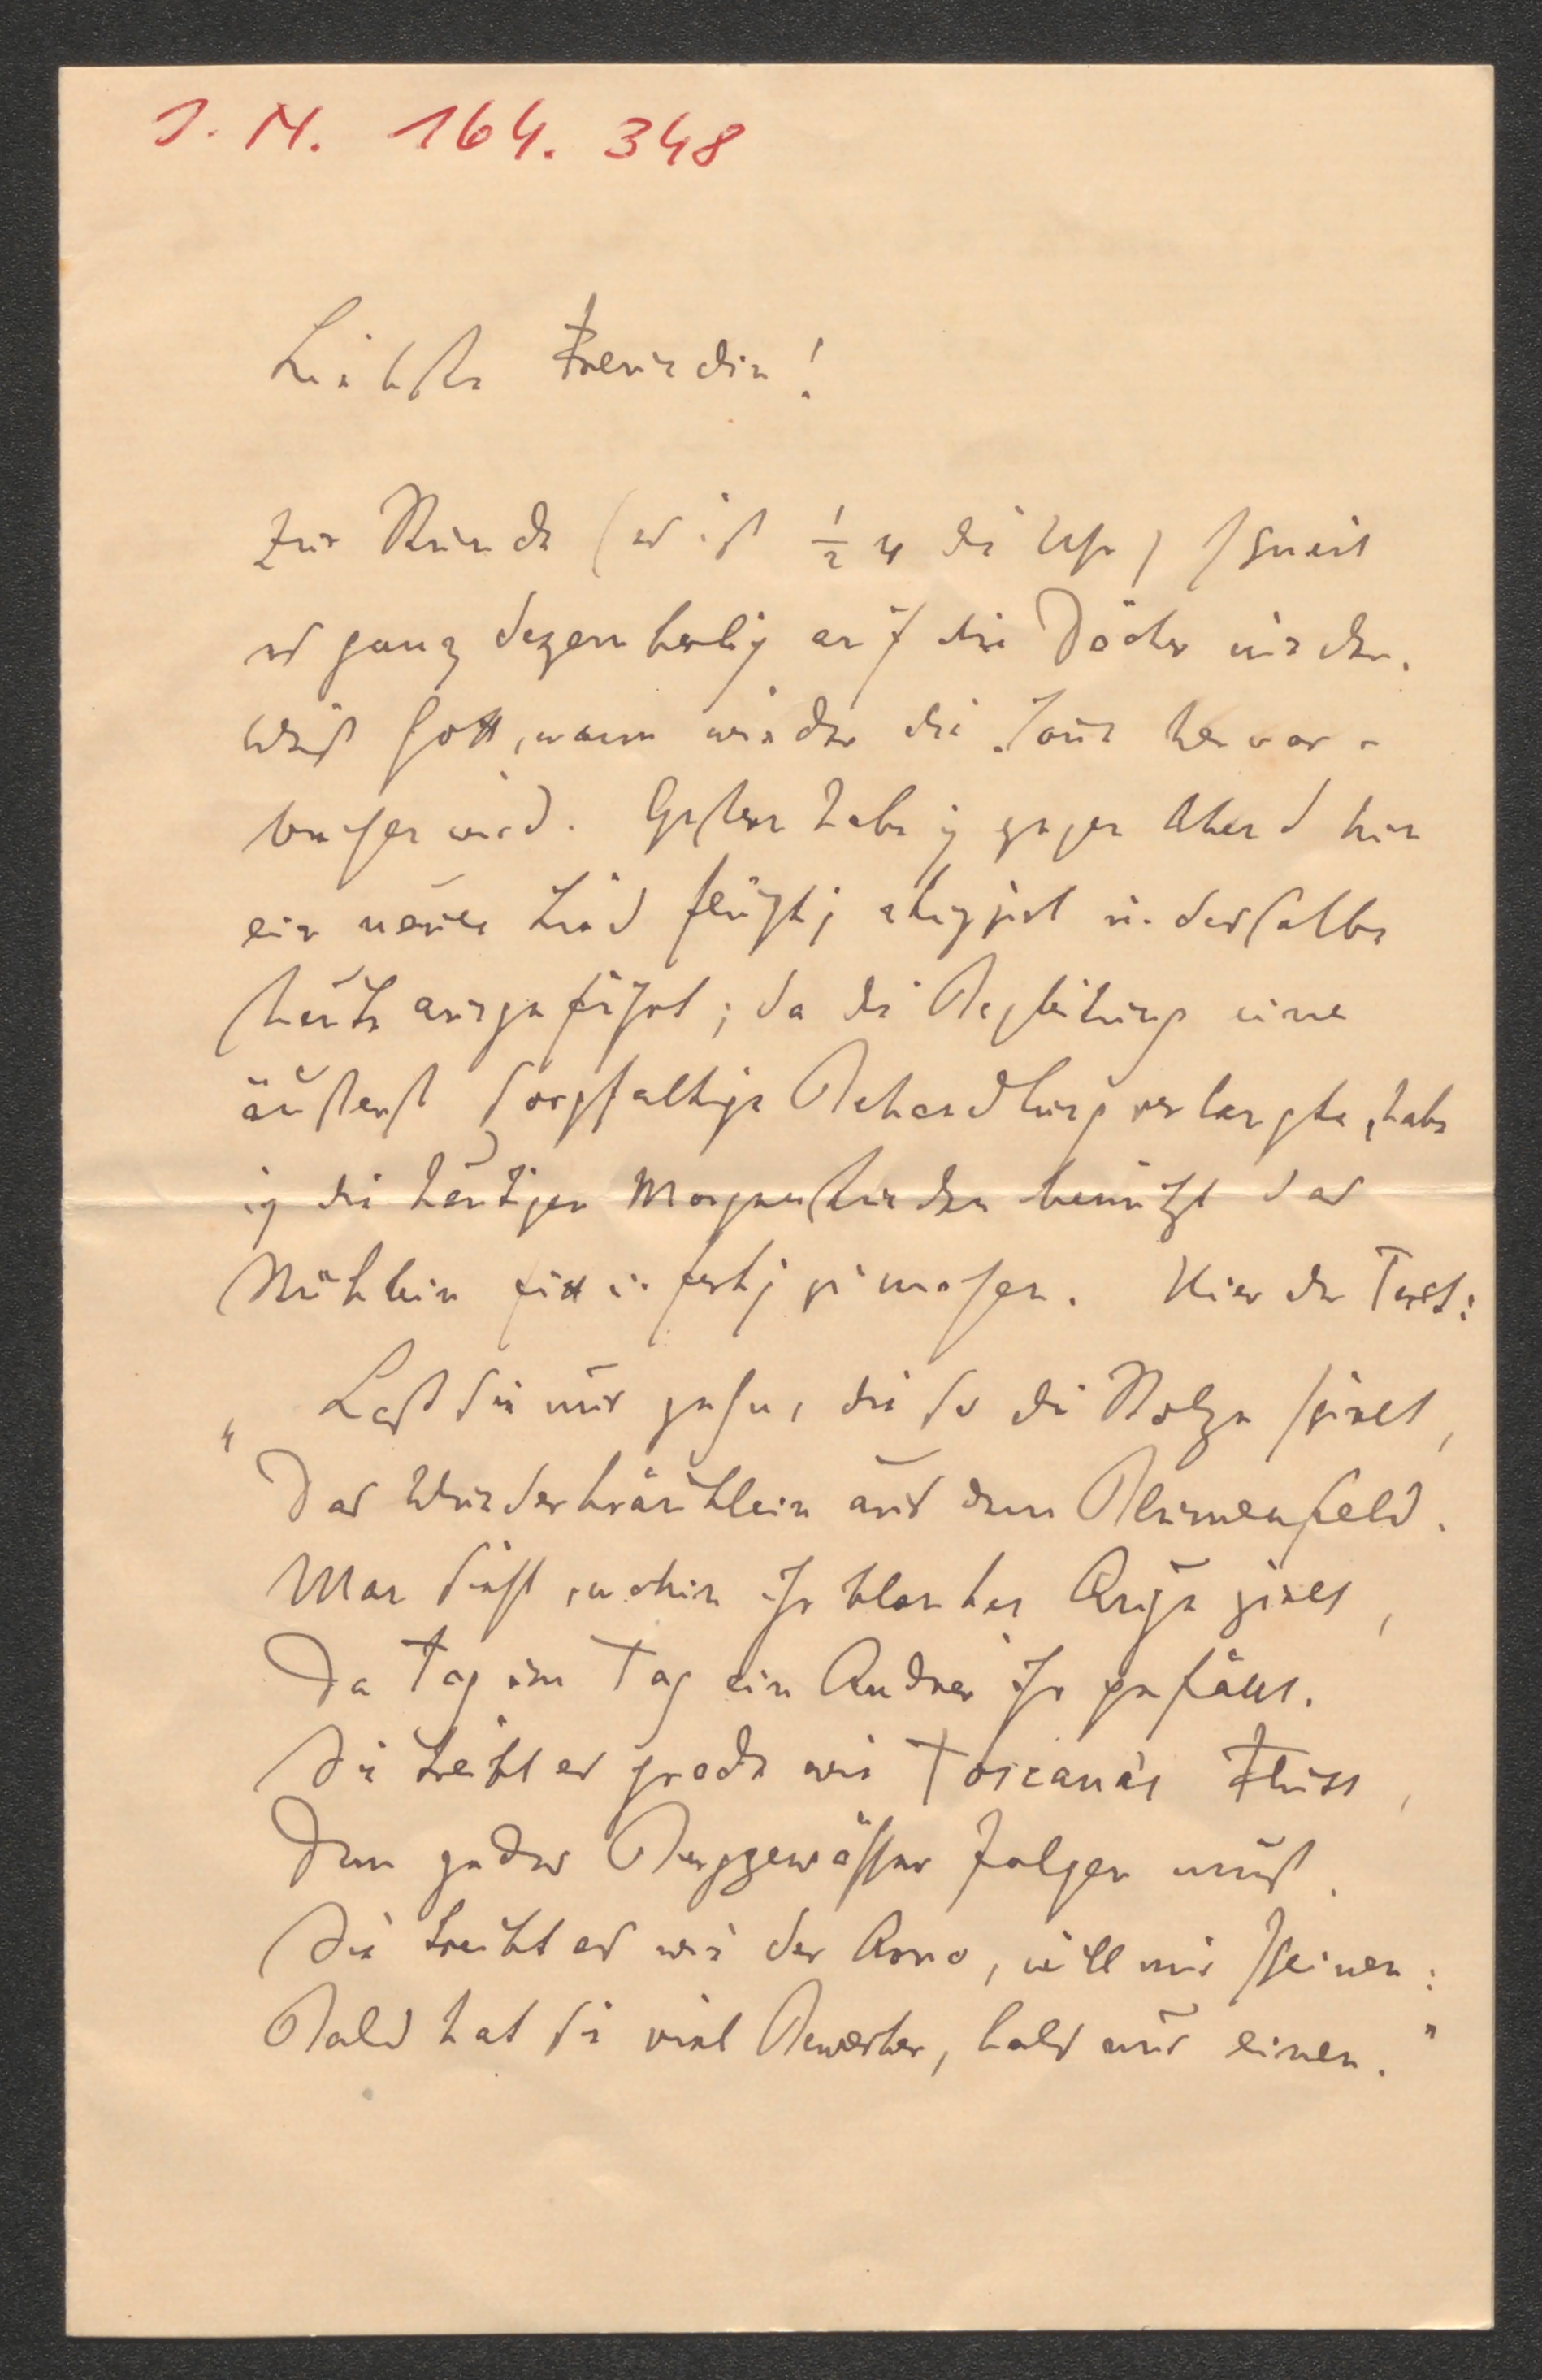 I. N. 164. 348
Liebste Freundin!
Zur Stunde (es ist ½ 4 die Uhr) schneit
es ganz dezemberlich auf die Dächer nieder.
Weiß Gott, wann wieder die Sonne hervor-
brechen wird. Gestern habe ich gegen Abend hin
ein neues Lied flüchtig skizzirt u. dasselbe
heute ausgeführt; da die Begleitung eine
äußerst sorgfältige Behandlung verlangte, habe
ich die heutigen Morgenstunden benützt das
Stücklein fix u. fertig zu machen. Hier der Text:
"Laß sie nur gehn, die so die Stolze spielt,
Das Wunderkräutlein aus dem Blumenfeld.
Man sieht, wohin ihr blankes Auge zielt,
Da Tag um Tag ein Andrer ihr gefällt.
Sie treibt es grade wie Toscana's Fluss,
Dem jedes Berggewässer folgen muß.
Sie treibt es wie der Arno, will mir scheinen:
Bald hat sie viel Bewerber, bald nur einen."